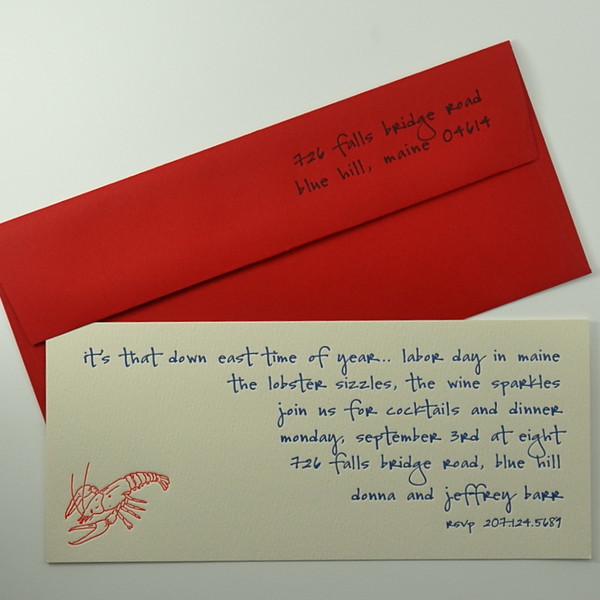 726 falls bridge road
blue hill, maine 04614
it's that down east time of year.. labor day in maine
the lobster sizzles, the wine sparkles
join us for cocktails and dinner
monday, september 3rd at eight
726 falls bridge road, blue hill
donna and jeffrey barr
rsvp 207.124.5689